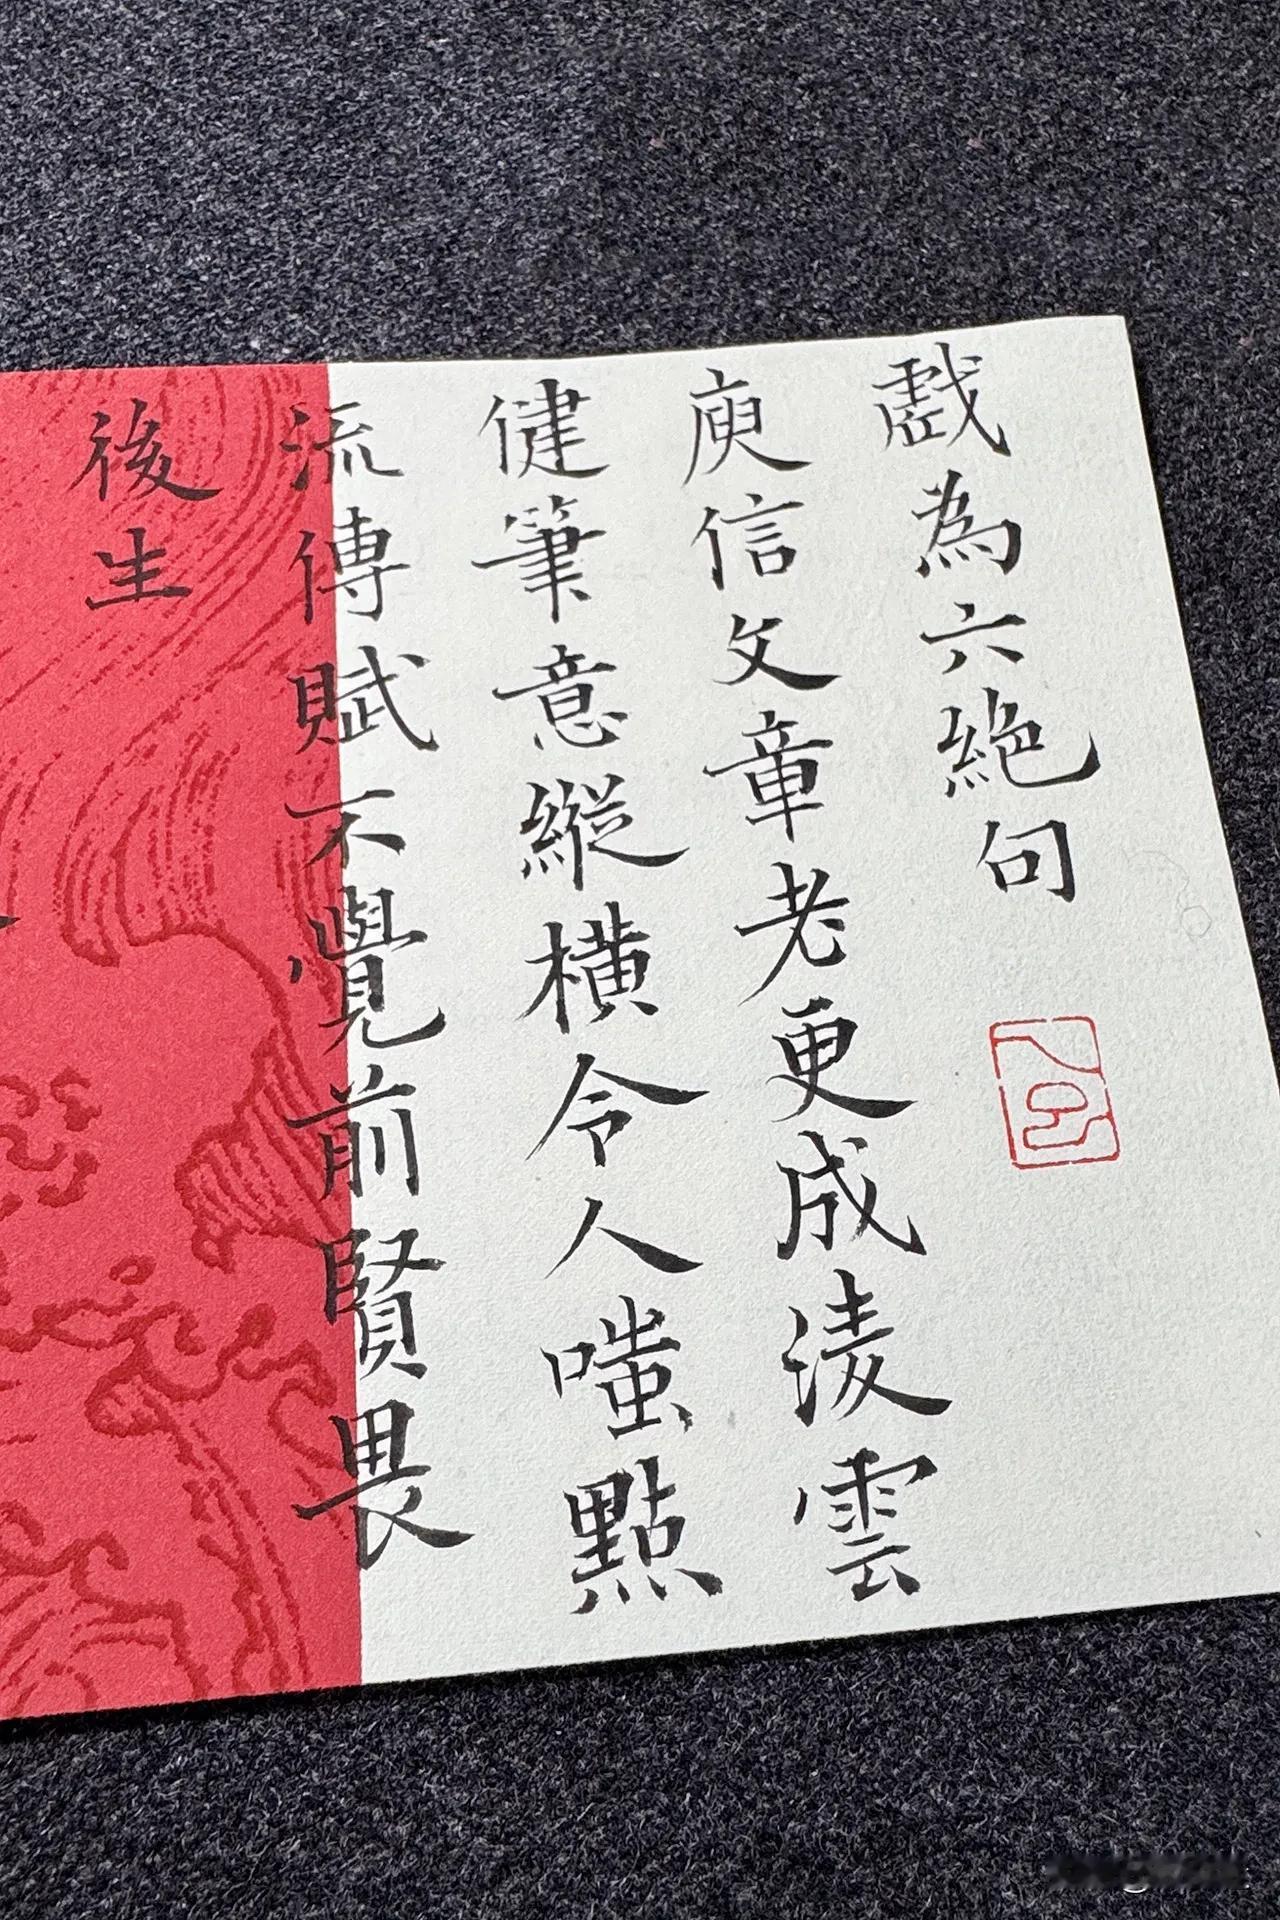 戲為六絕句
庾信文章老更成淩雲
健筆意縱橫令人嗤點
流傳賦不覺前賢畏
後生